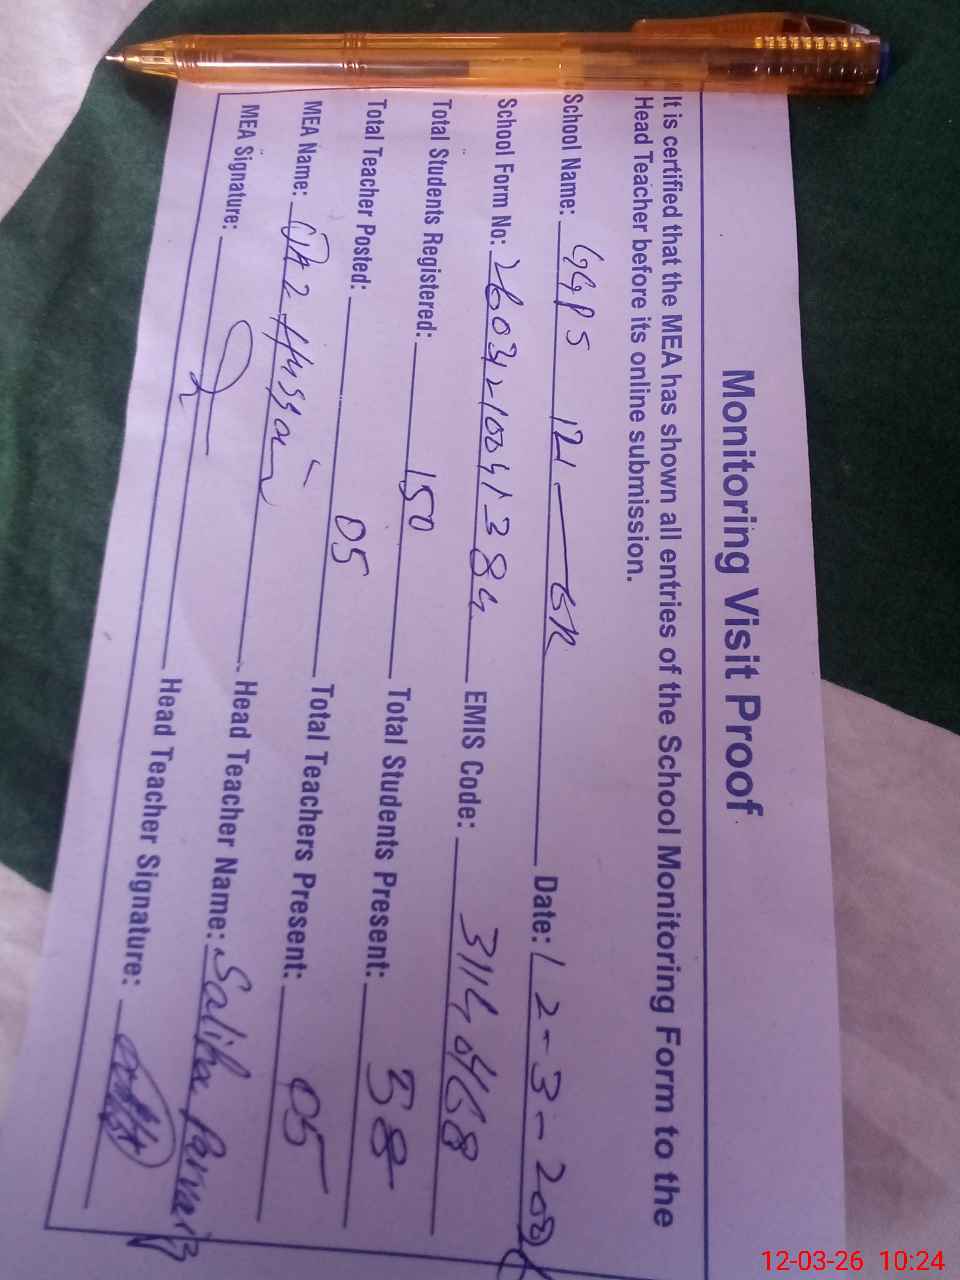 Monitoring Visit Proof
It is certified that the MEA has shown all entries of the School Monitoring Form to the
Head Teacher before its online submission.
School Name: GGPS 121-GR Date: 12-3-
School Form No: EMIS Code:
Total Students Registered: 150 Total Students Present: 38
Total Teacher Posted: 05 Total Teachers Present: 05
MEA Name: Hussain Head Teacher Name: Saliha Parvaiz
MEA Signature: Head Teacher Signature:
12-03-26 10:24